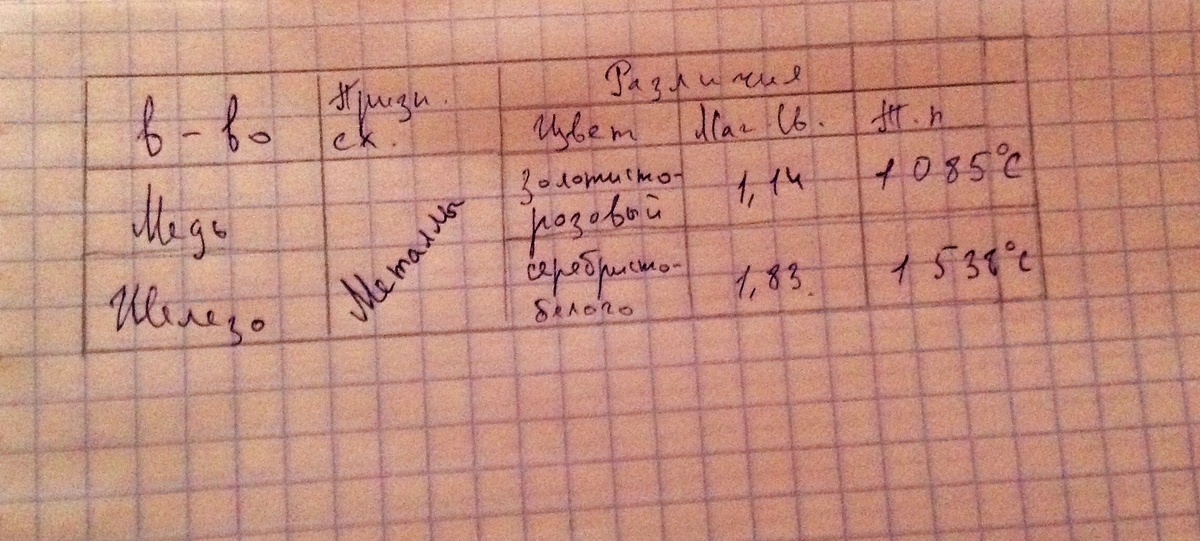 Различия
в-во
Призн.
ск.
Цвет
Маг. Св.
Т.п
Медь
Металлы
золотисто-
розовый
1,14
1085°C
Железо
серебристо-
белого
1,83.
1538°C